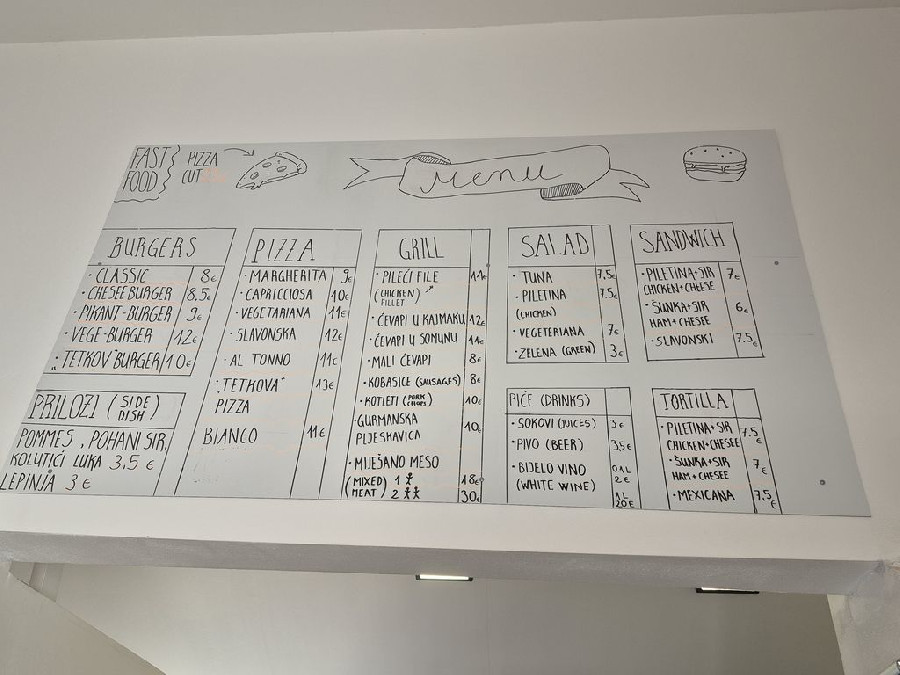 FAST
FOOD
PIZZA
CUT
Menu
BURGERS
· CLASSIC 8€
· CHESEEBURGER 8,5€
· PIKANT-BURGER 9€
· VEGE-BURGER 12€
· "TETKOV" BURGER 10€
PRILOZI (SIDE DISH)
POMMES, POHANI SIR,
KOLUTIĆI LUKA 3.5 €
LEPINJA 3 €
PIZZA
· MARGHERITA 9€
· CAPRICCIOSA 10€
· VEGETARIANA 11€
· SLAVONSKA 12€
· AL TONNO 11€
· "TETKOVA" 13€
PIZZA
BIANCO 11€
GRILL
· PILEĆI FILE 11€
(CHICKEN)
FILLET
· ĆEVAPI U KAJMAKU 12€
· ĆEVAPI U SOMUNU 11€
· MALI ĆEVAPI 8€
· KOBASICE (SAUSAGES) 8€
· KOTLETI (PORK CHOPS) 10€
GURMANSKA 10€
PLJESKAVICA
· MIJEŠANO MESO
(MIXED 1 18€
MEAT) 2 30€
SALAD
· TUNA 7,5€
· PILETINA 7,5€
(CHICKEN)
· VEGETERIANA 7€
· ZELENA (GREEN) 3€
PIĆE (DRINKS)
· SOKOVI (JUICES) 3€
· PIVO (BEER) 3,5€
· BIJELO VINO 0,1L
(WHITE WINE) 2€
1L
20€
SANDWICH
· PILETINA+SIR 7€
CHICKEN+CHEESE
· ŠUNKA+SIR 6€
HAM+CHESEE
· SLAVONSKI 7.5€
TORTILLA
· PILETINA+SIR 7.5€
CHICKEN+CHEESE
· ŠUNKA+SIR 7€
HAM+CHESEE
· MEXICANA 7.5€